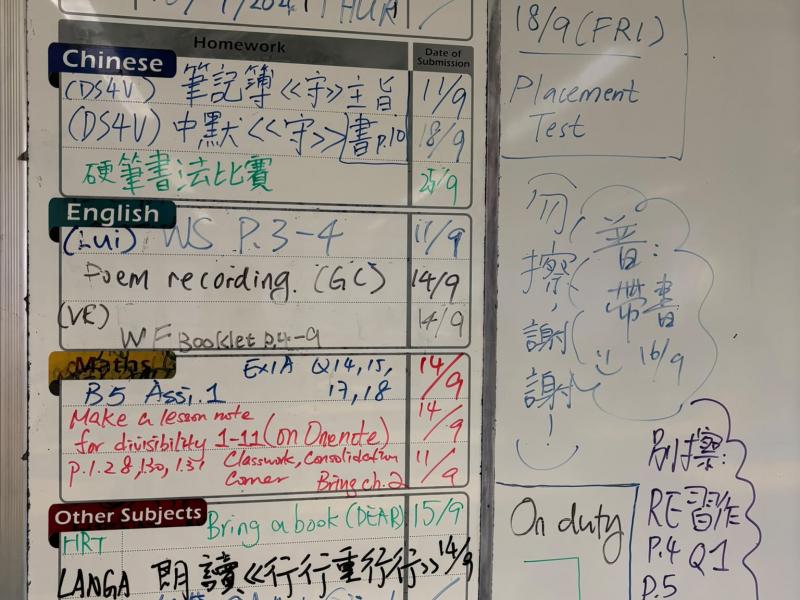 Homework
Date of Submission
Chinese
(DS4V) 筆記簿《守》主旨 11/9
(DS4V) 中默《守》書p.10 18/9
硬筆書法比賽 25/9
English
(Lui) WS P.3-4 11/9
Poem recording. (GC) 14/9
(VR) WF Booklet p.4-9 14/9
Maths
B5 Assi.1 Ex1A Q14,15, 17,18 14/9
Make a lesson note
for divisibility 1-11 (on Onenote) 14/9
Classwork, Consolidation 11/9
Corner Bring ch.2
Other Subjects
HRT Bring a book (DEAR) 15/9
LANGA 朗讀《行行重行行》 14/9
18/9 (FRI)
Placement
Test
勿擦,謝謝!
普:
帶書
16/9
別擦:
RE習作
P.4 Q1
P.5
On duty